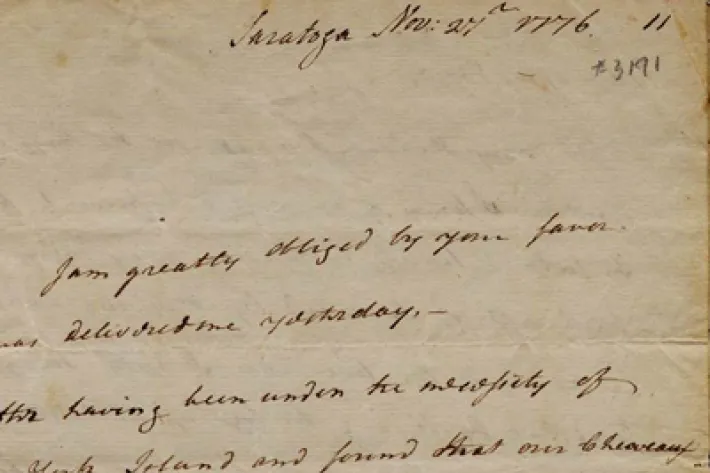 Saratoga Nov: 27th 1776. 11
#3191
I am greatly obliged by your favor
was delivered me yesterday. —
having been under the necessity of
York Island and found that our Chevaux